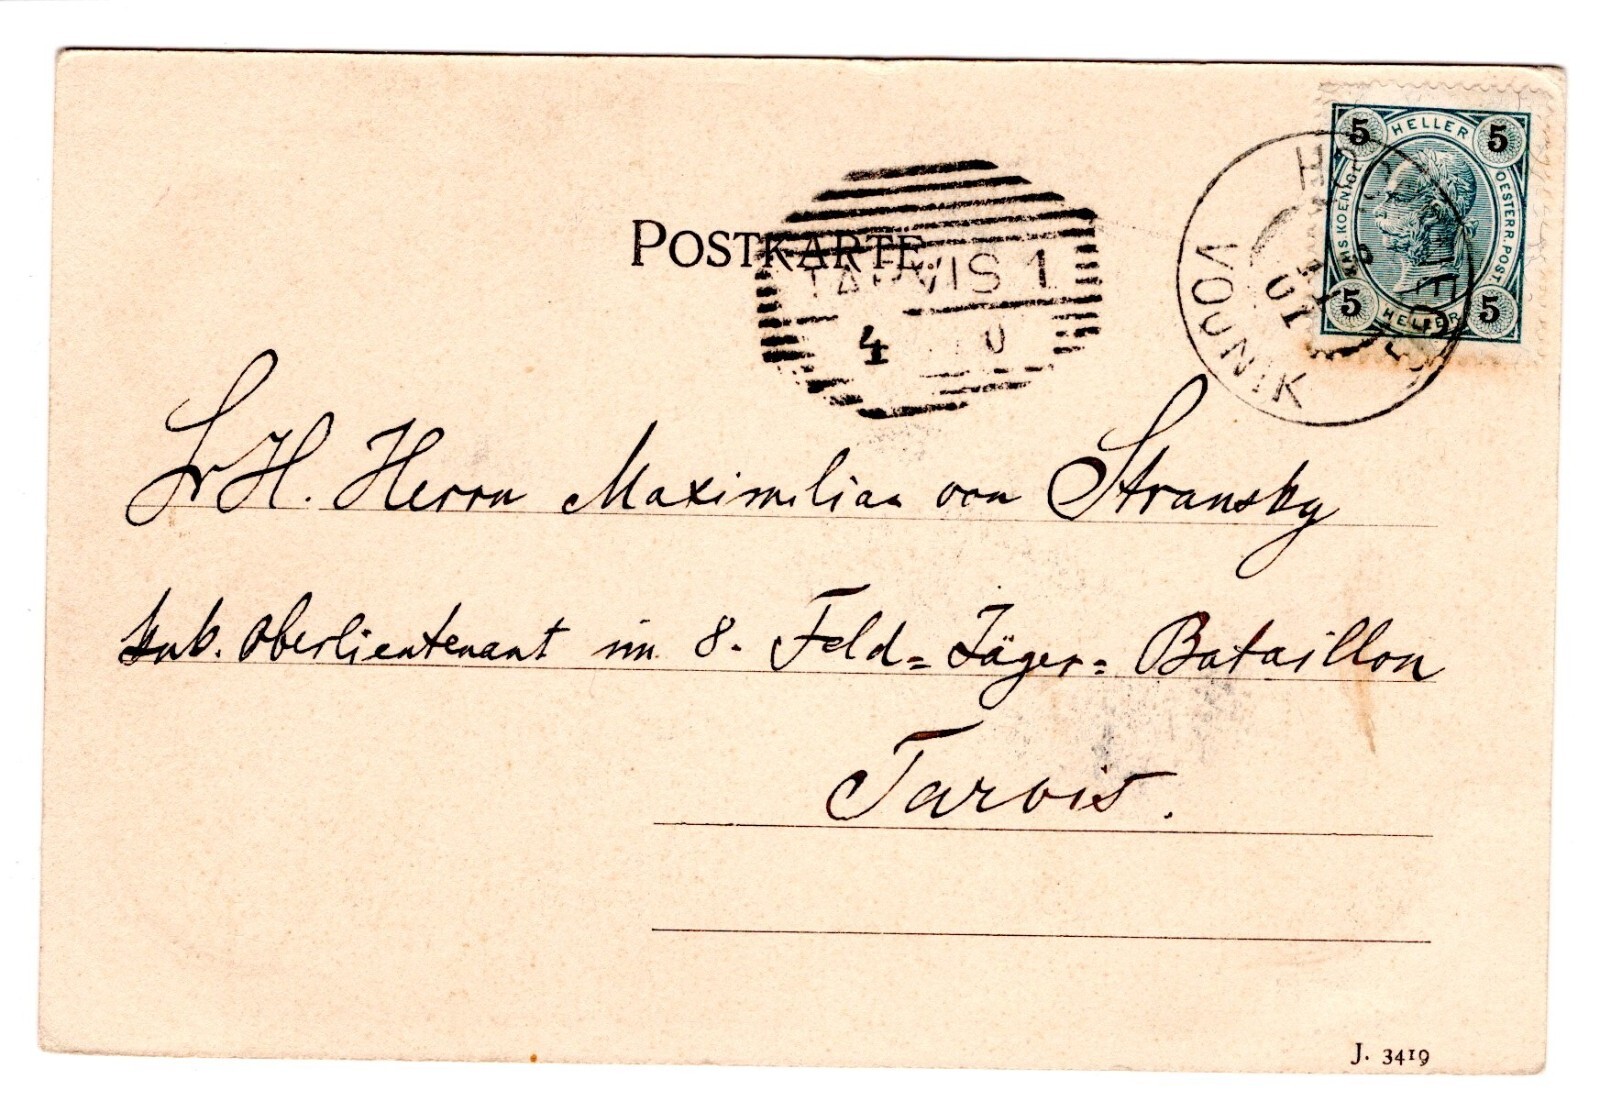 POSTKARTE
5 HELLER 5
KAIS. KOENIGL.
OESTERR. POST
5 HELLER 5
VODNIK
TARVIS 1
4
Sr H. Herrn Maximilian von Stransky
kuk. Oberlieutenant im 8. Feld=Jäger=Bataillon
Tarvis.
J. 3419